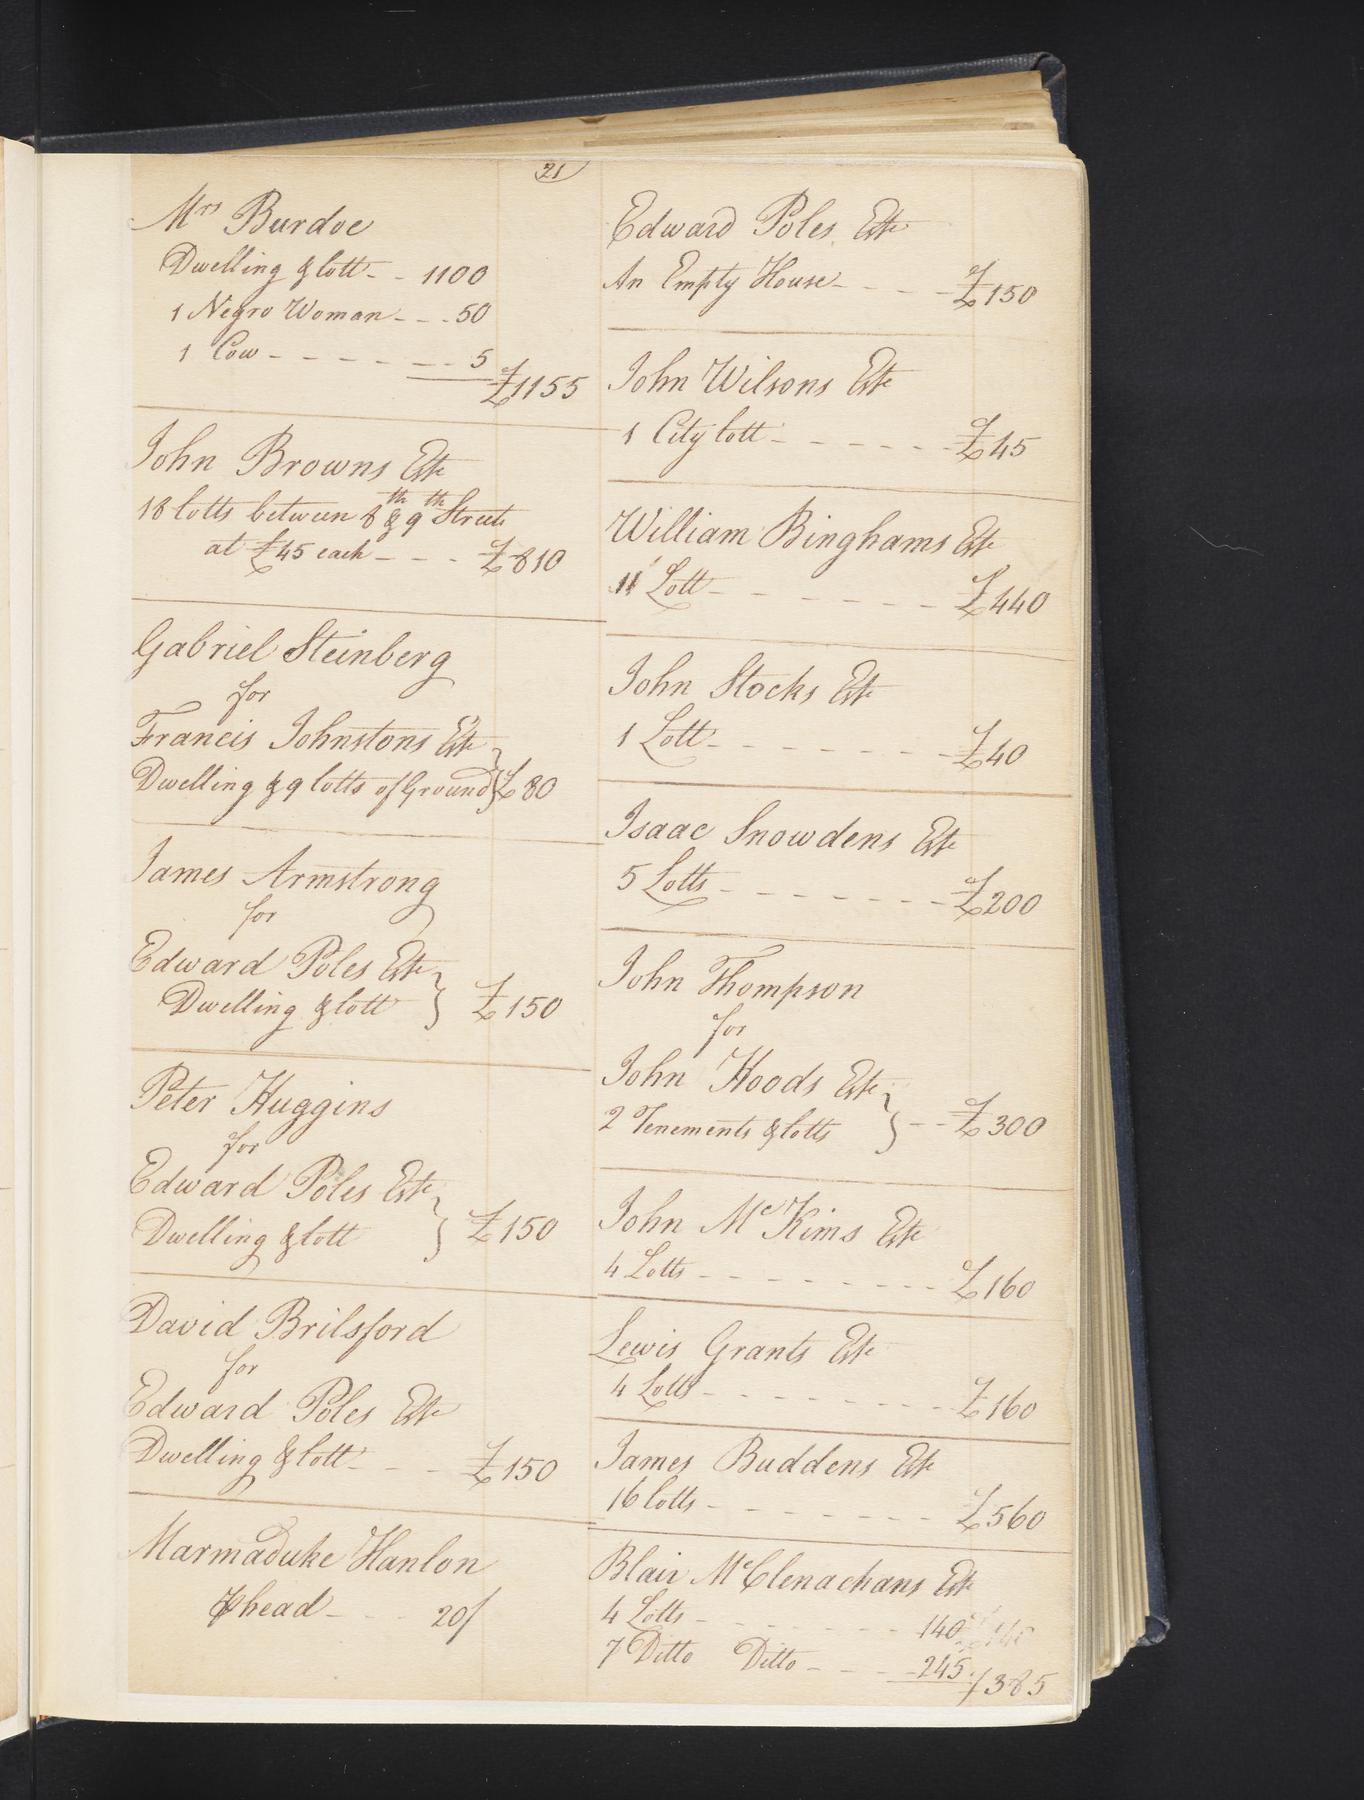 21
Mrs Burdoe
Dwelling & lott - - 1100
1 Negro Woman - - - 50
1 Cow - - - - - - - - 5
£1155
John Browns Este
18 lotts between 8th & 9th Streets
at £45 each - - - £810
Gabriel Steinberg
for
Francis Johnstons Este
Dwelling & 9 lotts of Ground } £80
James Armstrong
for
Edward Poles Este
Dwelling & lott } £150
Peter Huggins
for
Edward Poles Este
Dwelling & lott } £150
David Brilsford
for
Edward Poles Este
Dwelling & lott - - - £150
Marmaduke Hanlon
⅌ head - - - 20/
Edward Poles Este
An Empty House - - - - £150
John Wilsons Este
1 City lott - - - - - - £45
William Binghams Este
11 Lott - - - - - - - £440
John Stocks Este
1 Lott - - - - - - - - £40
Isaac Snowdens Este
5 Lotts - - - - - - - - £200
John Thompson
for
John Hoods Este
2 Tenements & lotts } - - £300
John McKims Este
4 Lotts - - - - - - - - - £160
Lewis Grants Este
4 Lotts - - - - - - - - - £160
James Buddens Este
16 lotts - - - - - - - - £560
Blair McClenachans Este
4 Lotts - - - - - - - - 140
7 Ditto Ditto - - - - 245
£385